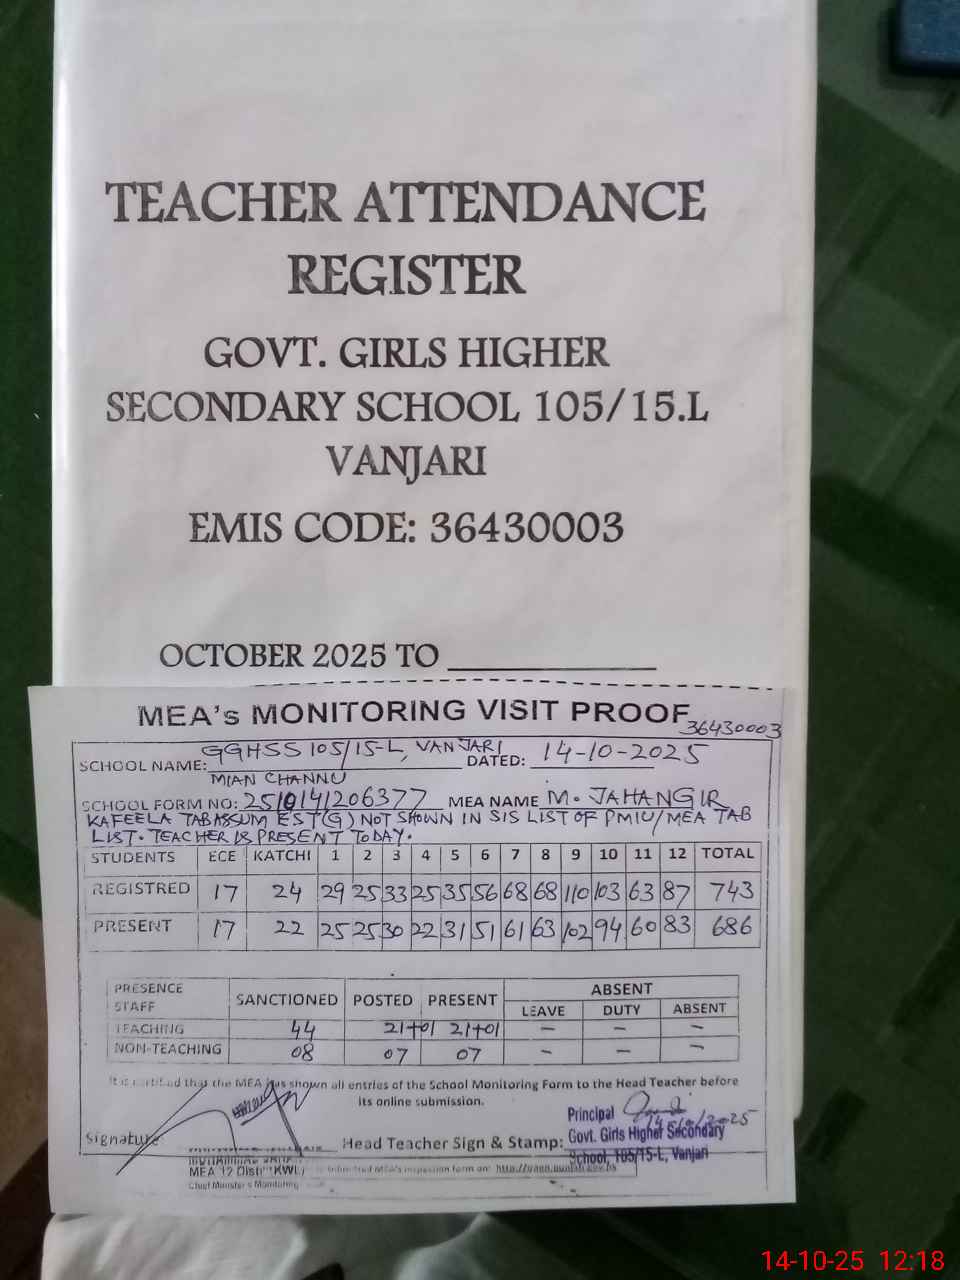 TEACHER ATTENDANCE
REGISTER
GOVT. GIRLS HIGHER
SECONDARY SCHOOL 105/15.L
VANJARI
EMIS CODE: 36430003
OCTOBER 2025 TO ____________
MEA's MONITORING VISIT PROOF
36430003
SCHOOL NAME: GGHSS 105/15-L, VANJARI DATED: 14-10-2025
MIAN CHANNU
SCHOOL FORM NO: 2510141206377 MEA NAME M. JAHANGIR
KAFEELA TABASSUM EST(G) NOT SHOWN IN SIS LIST OF PMIU/MEA TAB
LIST. TEACHER IS PRESENT TODAY.
STUDENTS ECE KATCHI 1 2 3 4 5 6 7 8 9 10 11 12 TOTAL
REGISTRED 17 24 29 25 33 25 35 56 68 68 110 103 63 87 743
PRESENT 17 22 25 25 30 22 31 51 61 63 102 94 60 83 686
PRESENCE STAFF SANCTIONED POSTED PRESENT ABSENT
LEAVE DUTY ABSENT
TEACHING 44 21+01 21+01 - - -
NON-TEACHING 08 07 07 - - -
It is certified that the MEA has shown all entries of the School Monitoring Form to the Head Teacher before
its online submission.
Signature: Head Teacher Sign & Stamp:
Principal
14/10/2025
Govt. Girls Higher Secondary
School, 105/15-L, Vanjari
MEA 12 Distt: (KWL) submitted MEA's inspection form on:
Chief Minister's Monitoring
14-10-25 12:18